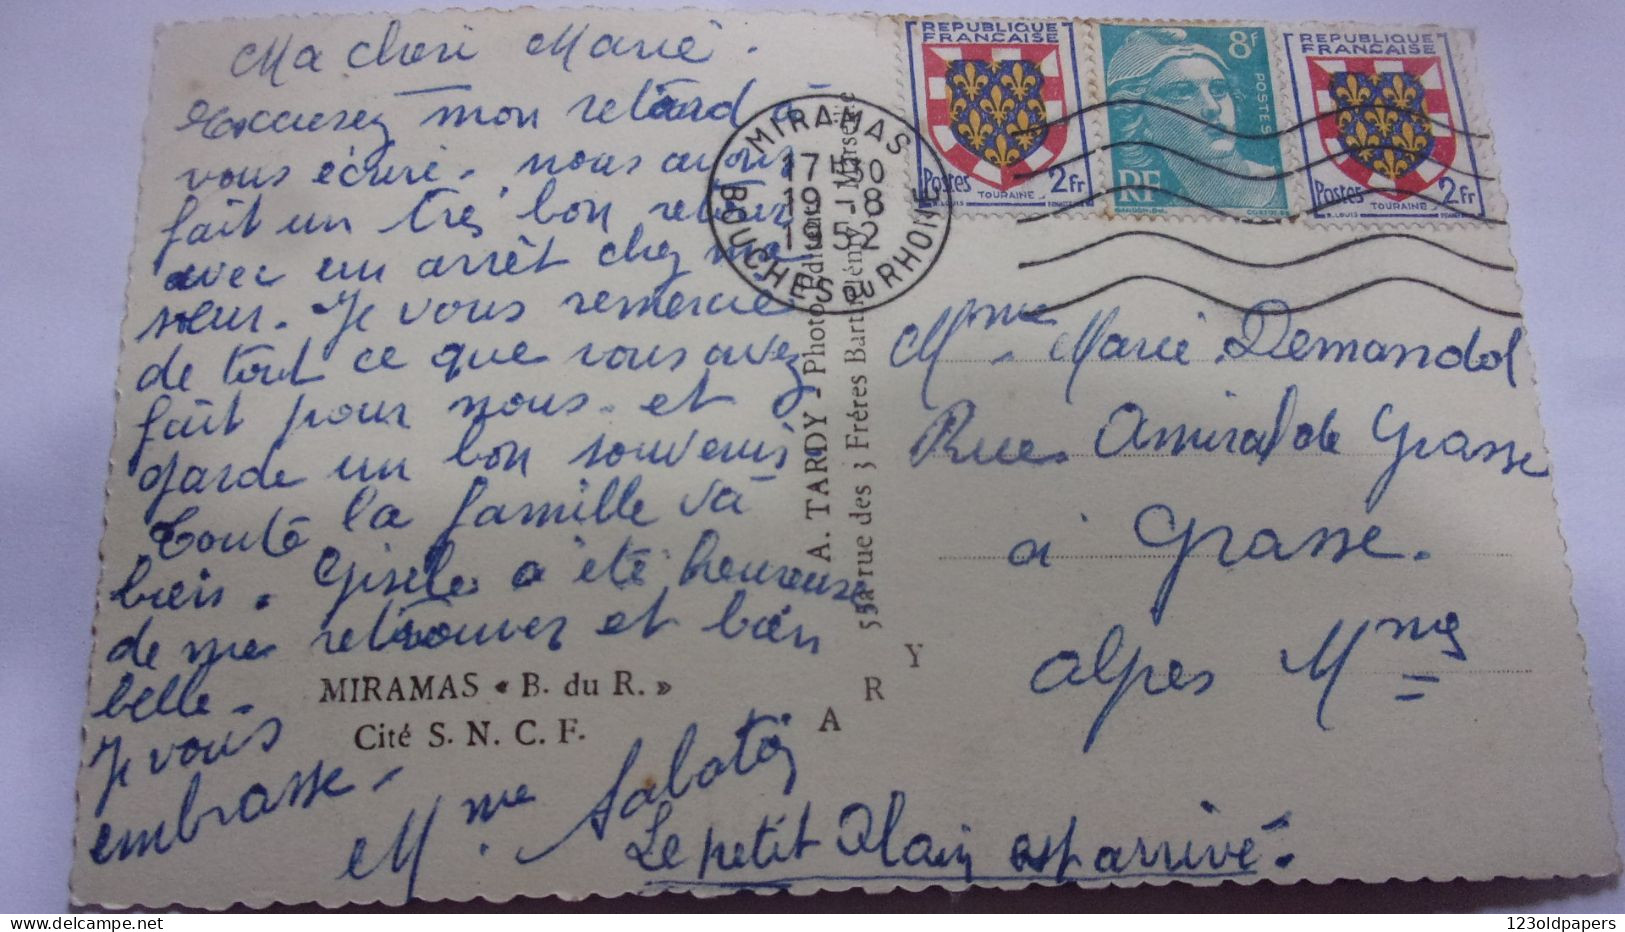 Ma cheri Marie.
Excusez mon retard à
vous écrire. nous avons
fait un tré bon retour
avec un arrêt chez ma
sœur. Je vous remercie
de tout ce que vous avez
fait pour nous. et
garde un bon souvenir
Toute la famille va
bien. Gisele a été heureuse
de me retrouver et bien
belle.
Je vous
embrasse.
Mme Sabatéi
Le petit Alain est arrivé.
MIRAMAS « B. du R. »
Cité S. N. C. F.
A. TARDY - Photo-Editeur
55a rue des 3 Fréres Barthélémy - Marseille
ARY
MIRAMAS
17 H 30
19 - 8
1952
BOUCHES DU RHONE
REPUBLIQUE
FRANÇAISE
Postes 2Fr
TOURAINE
8f
POSTES
RF
REPUBLIQUE
FRANÇAISE
Postes 2Fr
TOURAINE
Mme Marie Demandol
Rue Amiral de Grasse
à Grasse.
Alpes Mmes
123oldpapers